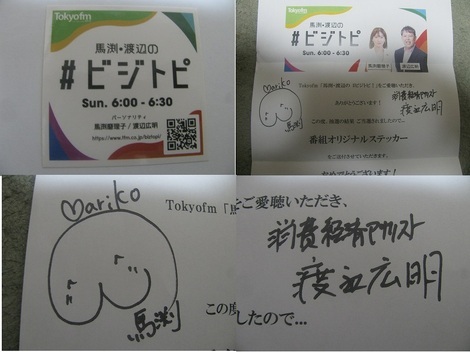 Tokyofm
馬渕・渡辺の
#ビジトピ
Sun. 6:00 - 6:30
パーソナリティ
馬渕磨理子 / 渡辺広明
https://www.tfm.co.jp/bizitopi/
Tokyofm
馬渕・渡辺の
#ビジトピ
Sun. 6:00 - 6:30
馬渕磨理子
渡辺広明
Mariko
馬渕
Tokyofm「馬渕・渡辺の #ビジトピ」をご愛聴いただき、
ありがとうございます！
消費経済アナリスト
渡辺広明
この度、抽選の結果、ご当選されましたので…
番組オリジナルステッカー
をご送付させていただきます。
おめでとうございます！
Mariko
Tokyofm「馬
馬渕
この度
をご愛聴いただき、
消費経済アナリスト
渡辺広明
したので...